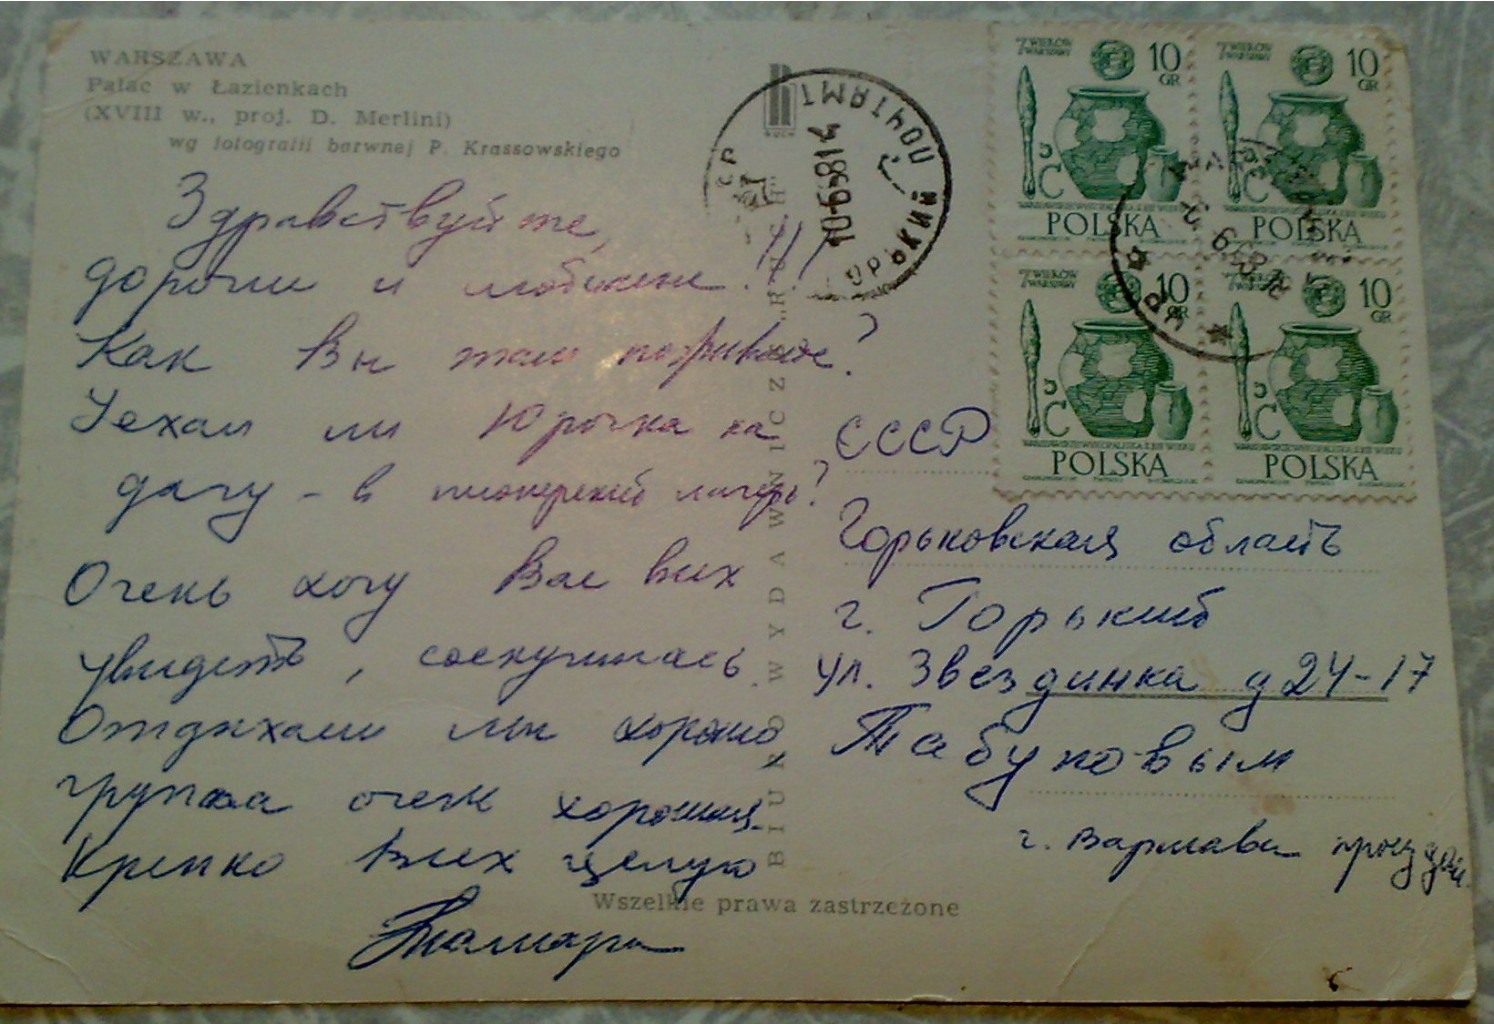 WARSZAWA
Pałac w Łazienkach
(XVIII w., proj. D. Merlini)
wg fotografii barwnej P. Krassowskiego
RUCH
Здравствуйте,
дорогие и любимые!!!
Как Вы там поживаете?
Уехал ли Юрочка на
дачу - в пионерский лагерь?
Очень хочу Вас всех
увидеть, соскучилась.
Отдыхаем мы хорошо
группа очень хорошая
Крепко Всех целую
Тамара
BIURO WYDAWNICZE „RUCH"
ПОЧТАМТ
10-6-6814
ГОРЬКИЙ
7 WIEKÓW WARSZAWY
10 GR
POLSKA
7 WIEKÓW WARSZAWY
10 GR
POLSKA
7 WIEKÓW WARSZAWY
10 GR
POLSKA
7 WIEKÓW WARSZAWY
10 GR
POLSKA
СССР
Горьковская область
г. Горький
ул. Звездинка д 24-17
Табуновым
г. Варшава проездом.
Wszelkie prawa zastrzeżone